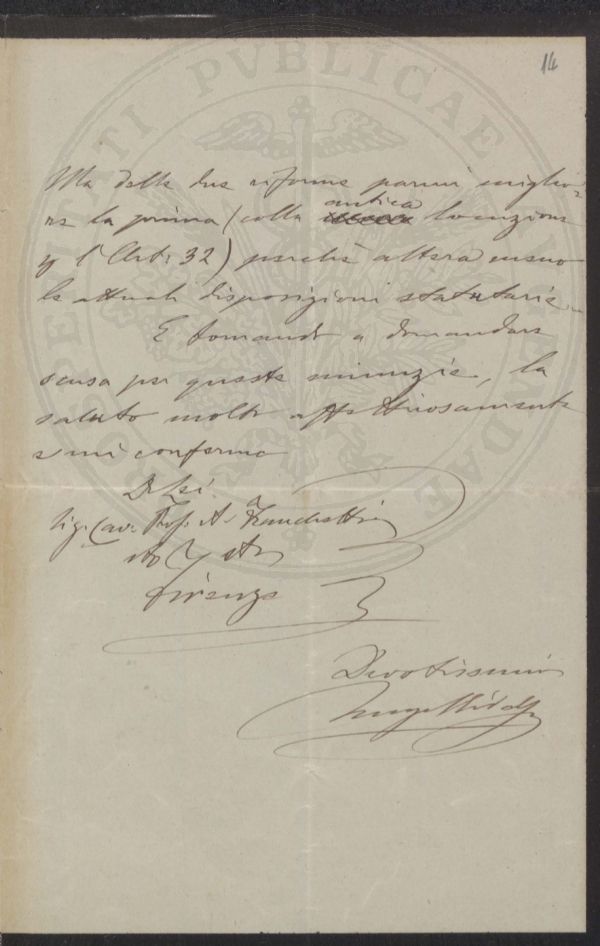 14
PROSPERITATI PVBLICAE AVGENDAE
Ma delle due riforme parmi miglio-
re la prima (colla antica locuzione
p l'Art: 32) perchè altera meno
le attuali disposizioni statutarie.
E tornando a domandare
scusa per queste minuzie, la
saluto molto affettuosamente
e mi confermo
Di Lei
Sig. Cav. Prof. A. Franchetti
Firenze
Devotissimo
Luigi Ridolfi